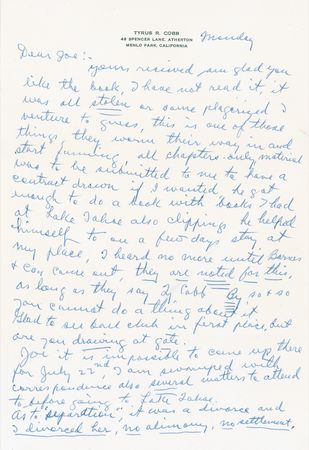 TYRUS R. COBB
48 SPENCER LANE, ATHERTON
MENLO PARK, CALIFORNIA
Monday
Dear Joe:-
yours received, am glad you
like the book, I have not read it, it
was all stolen or some plagerized I
venture to guess, this is one of those
things, they worm their way in and
start running, all chapters only, material
was to be submitted to me to have a
contract drawn if I wanted he got
enough to do a book with books I had
at Lake Tahoe also clippings he helped
himself to on a few days stay, at
my place, I heard no more until Barnes
& co, came out, they are noted for this,
as long as they say Ty Cobb By so & so
you cannot do a thing about it
Glad to see ball club in first place, but
are you drawing at gate.
Joe it is impossible to come up there
for July 22nd, I am swamped with
correspondence also several matters to attend
to before going to Lake Tahoe.
As to "separation", it was a divorce and
I divorced her, no alimony, no settlement,